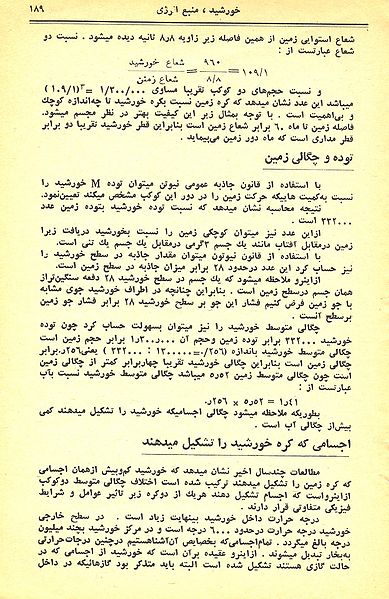 خورشید ، منبع انرژی
۱۸۹
شعاع استوایی زمین از همین فاصله زیر زاویه ۸ر۸ ثانیه دیده میشود . نسبت دو
شعاع عبارتست از :
شعاع خورشید / شعاع زمین = ۹۶۰ / ۸/۸ = ۱۰۹/۱
و نسبت حجم‌های دو کوکب تقریبا مساوی ۱/۳۰۰/۰۰۰ = ۳(۱۰۹/۱)
میباشد این عدد نشان میدهد که کره زمین نسبت بکره خورشید تا چه‌اندازه کوچک
و بی‌اهمیت است . با توجه بمثال زیر این کیفیت بهتر در نظر مجسم میشود.
فاصله زمین تا ماه ۶۰ برابر شعاع زمین است بنابراین قطر خورشید تقریبا دو برابر
قطر مداری است که ماه دور زمین می‌پیماید .
توده و چگالی زمین
با استفاده از قانون جاذبه عمومی نیوتن میتوان توده M خورشید را
نسبت به‌کمیت هاییکه حرکت زمین را در دور این کوکب مشخص میکند تعیین‌نمود.
نتیجه محاسبه نشان میدهد که نسبت توده خورشید بتوده زمین عدد
۳۳۲۰۰۰ است .
ازاین عدد نیز میتوان کوچکی زمین را نسبت بخورشید دریافت زیرا
زمین درمقابل آفتاب مانند یک جسم ۳گرمی درمقابل یک جسم یک تنی است.
با استفاده از قانون نیوتون میتوان مقدار جاذبه در سطح خورشید را
نیز حساب کرد این عدد درحدود ۲۸ برابر میزان جاذبه در سطح زمین است.
ازاینرو ملاحظه میشود که یک جسم در سطح خورشید ۲۸ دفعه سنگین‌تراز
همان جسم درسطح زمین است . بنابراین چنانچه در اطراف خورشید جوی مشابه
با جو زمین فرض کنیم فشار این جو بر سطح خورشید ۲۸ برابر فشار جو زمین
برسطح آنست .
چگالی متوسط خورشید را نیز میتوان بسهولت حساب کرد چون توده
خورشید ۳۳۲۰۰۰ برابر توده زمین و حجم آن ۳۰۰ر۰۰۰ر۱ برابر حجم زمین است
چگالی متوسط خورشید باندازه (۲۵۶/۰=۱۳۰۰۰۰۰ : ۳۳۲۰۰۰) یعنی ۲۵۶ر۰برابر
چگالی زمین است بنابراین چگالی خورشید تقریبا چهاربرابر کمتر از چگالی زمین
است چون چگالی متوسط زمین ۵۲ر۵ میباشد چگالی متوسط خورشید نسبت بآب
عبارتست از :
۴۱ر۱ = ۵۲ر۵ × ۲۵۶ر۰
بطوریکه ملاحظه میشود چگالی اجسامیکه خورشید را تشکیل میدهند کمی
بیش‌از چگالی آب است .
اجسامی که کره خورشید را تشکیل میدهند
مطالعات چندسال اخیر نشان میدهد که خورشید کم‌وبیش ازهمان اجسامی
که کره زمین را تشکیل میدهند ترکیب شده است اختلاف چگالی متوسط دوکوکب
ازاینرواست که اجسام تشکیل دهند هریک از دوکره زیر تاثیر عوامل و شرایط
فیزیکی متفاوتی قرار دارند .
درجه حرارت داخل خورشید بینهایت زیاد است . در سطح خارجی
خورشید درجه حرارت درحدود ۶۰۰۰ درجه است و در مرکز خورشید بچند میلیون
درجه بالغ میگردد . تمام‌اجسامی‌که بخصایص آن‌آشناهستیم درچنین درجات‌حرارتی
به‌بخار تبدیل میشوند . ازاینرو عقیده برآن است که خورشید از اجسامی که در
حالت گازی هستند تشکیل شده است البته باید متذکر بود گازهائیکه در داخل